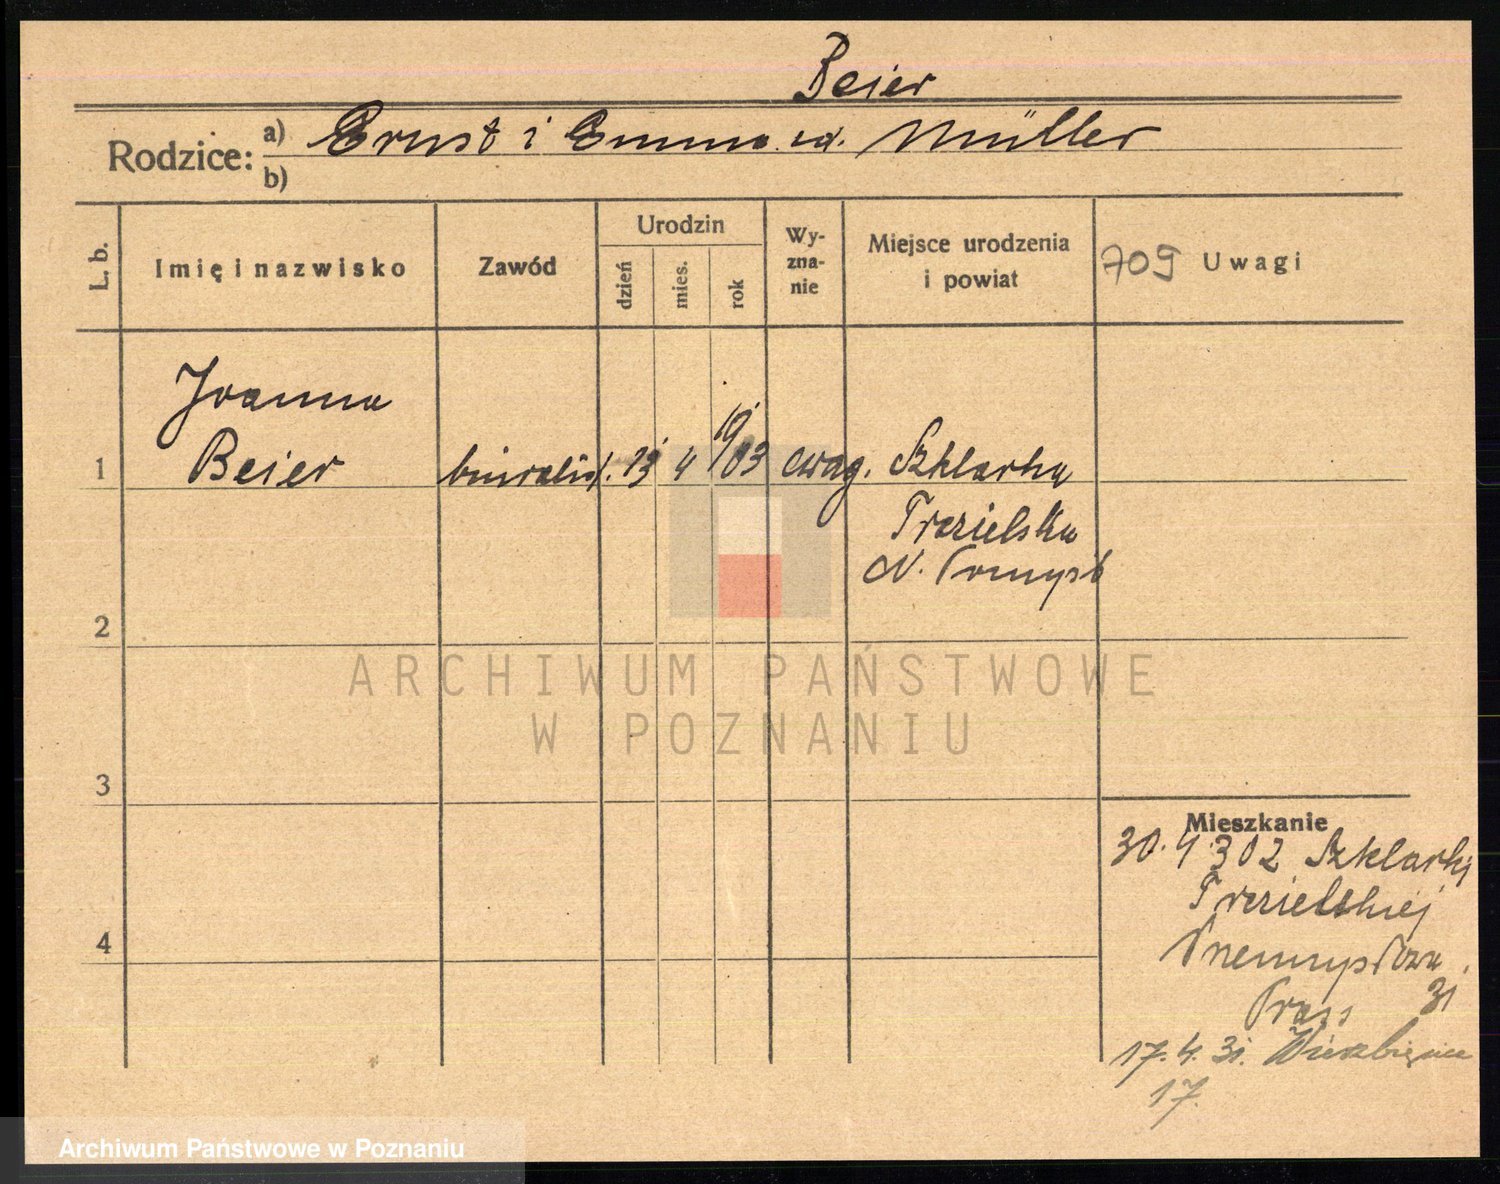 Beier
Rodzice: a) Ernst i Emma zd. Müller
b)
L. b.
Imię i nazwisko
Zawód
Urodzin
dzień
mies.
rok
Wy-
zna-
nie
Miejsce urodzenia
i powiat
709 Uwagi
Joanna
1 Beier biuralist. 13 4 19/03 ewag. Szklarka
Trzcielska
N. Tomyśl
2
ARCHIWUM PAŃSTWOWE
W POZNANIU
3
Mieszkanie
30. 4 30 z Szklarki
Trzcielskiej
Przemysłowa
31
17. 4. 31. Wierzbięcice
17.
4
Archiwum Państwowe w Poznaniu